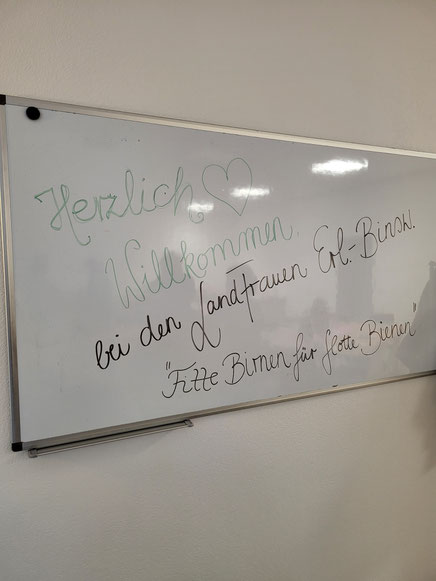 Herzlich
Willkommen
bei den Landfrauen Erl.-Binsw.
"Fitte Birnen für flotte Bienen"